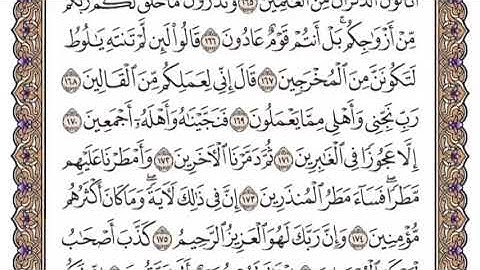 أَتَأْتُونَ ٱلذُّكْرَانَ مِنَ ٱلْعَٰلَمِينَ ١٦٥ وَتَذَرُونَ مَا خَلَقَ لَكُمْ رَبُّكُم
مِّنْ أَزْوَٰجِكُم ۚ بَلْ أَنتُمْ قَوْمٌ عَادُونَ ١٦٦ قَالُوا۟ لَئِن لَّمْ تَنتَهِ يَٰلُوطُ
لَتَكُونَنَّ مِنَ ٱلْمُخْرَجِينَ ١٦٧ قَالَ إِنِّى لِعَمَلِكُم مِّنَ ٱلْقَالِينَ ١٦٨
رَبِّ نَجِّنِى وَأَهْلِى مِمَّا يَعْمَلُونَ ١٦٩ فَنَجَّيْنَٰهُ وَأَهْلَهُۥٓ أَجْمَعِينَ ١٧٠
إِلَّا عَجُوزًا فِى ٱلْغَٰبِرِينَ ١٧١ ثُمَّ دَمَّرْنَا ٱلْءَاخَرِينَ ١٧٢ وَأَمْطَرْنَا عَلَيْهِم
مَّطَرًا ۖ فَسَآءَ مَطَرُ ٱلْمُنذَرِينَ ١٧٣ إِنَّ فِى ذَٰلِكَ لَءَايَةً ۖ وَمَا كَانَ أَكْثَرُهُم
مُّؤْمِنِينَ ١٧٤ وَإِنَّ رَبَّكَ لَهُوَ ٱلْعَزِيزُ ٱلرَّحِيمُ ١٧٥ كَذَّبَ أَصْحَٰبُ